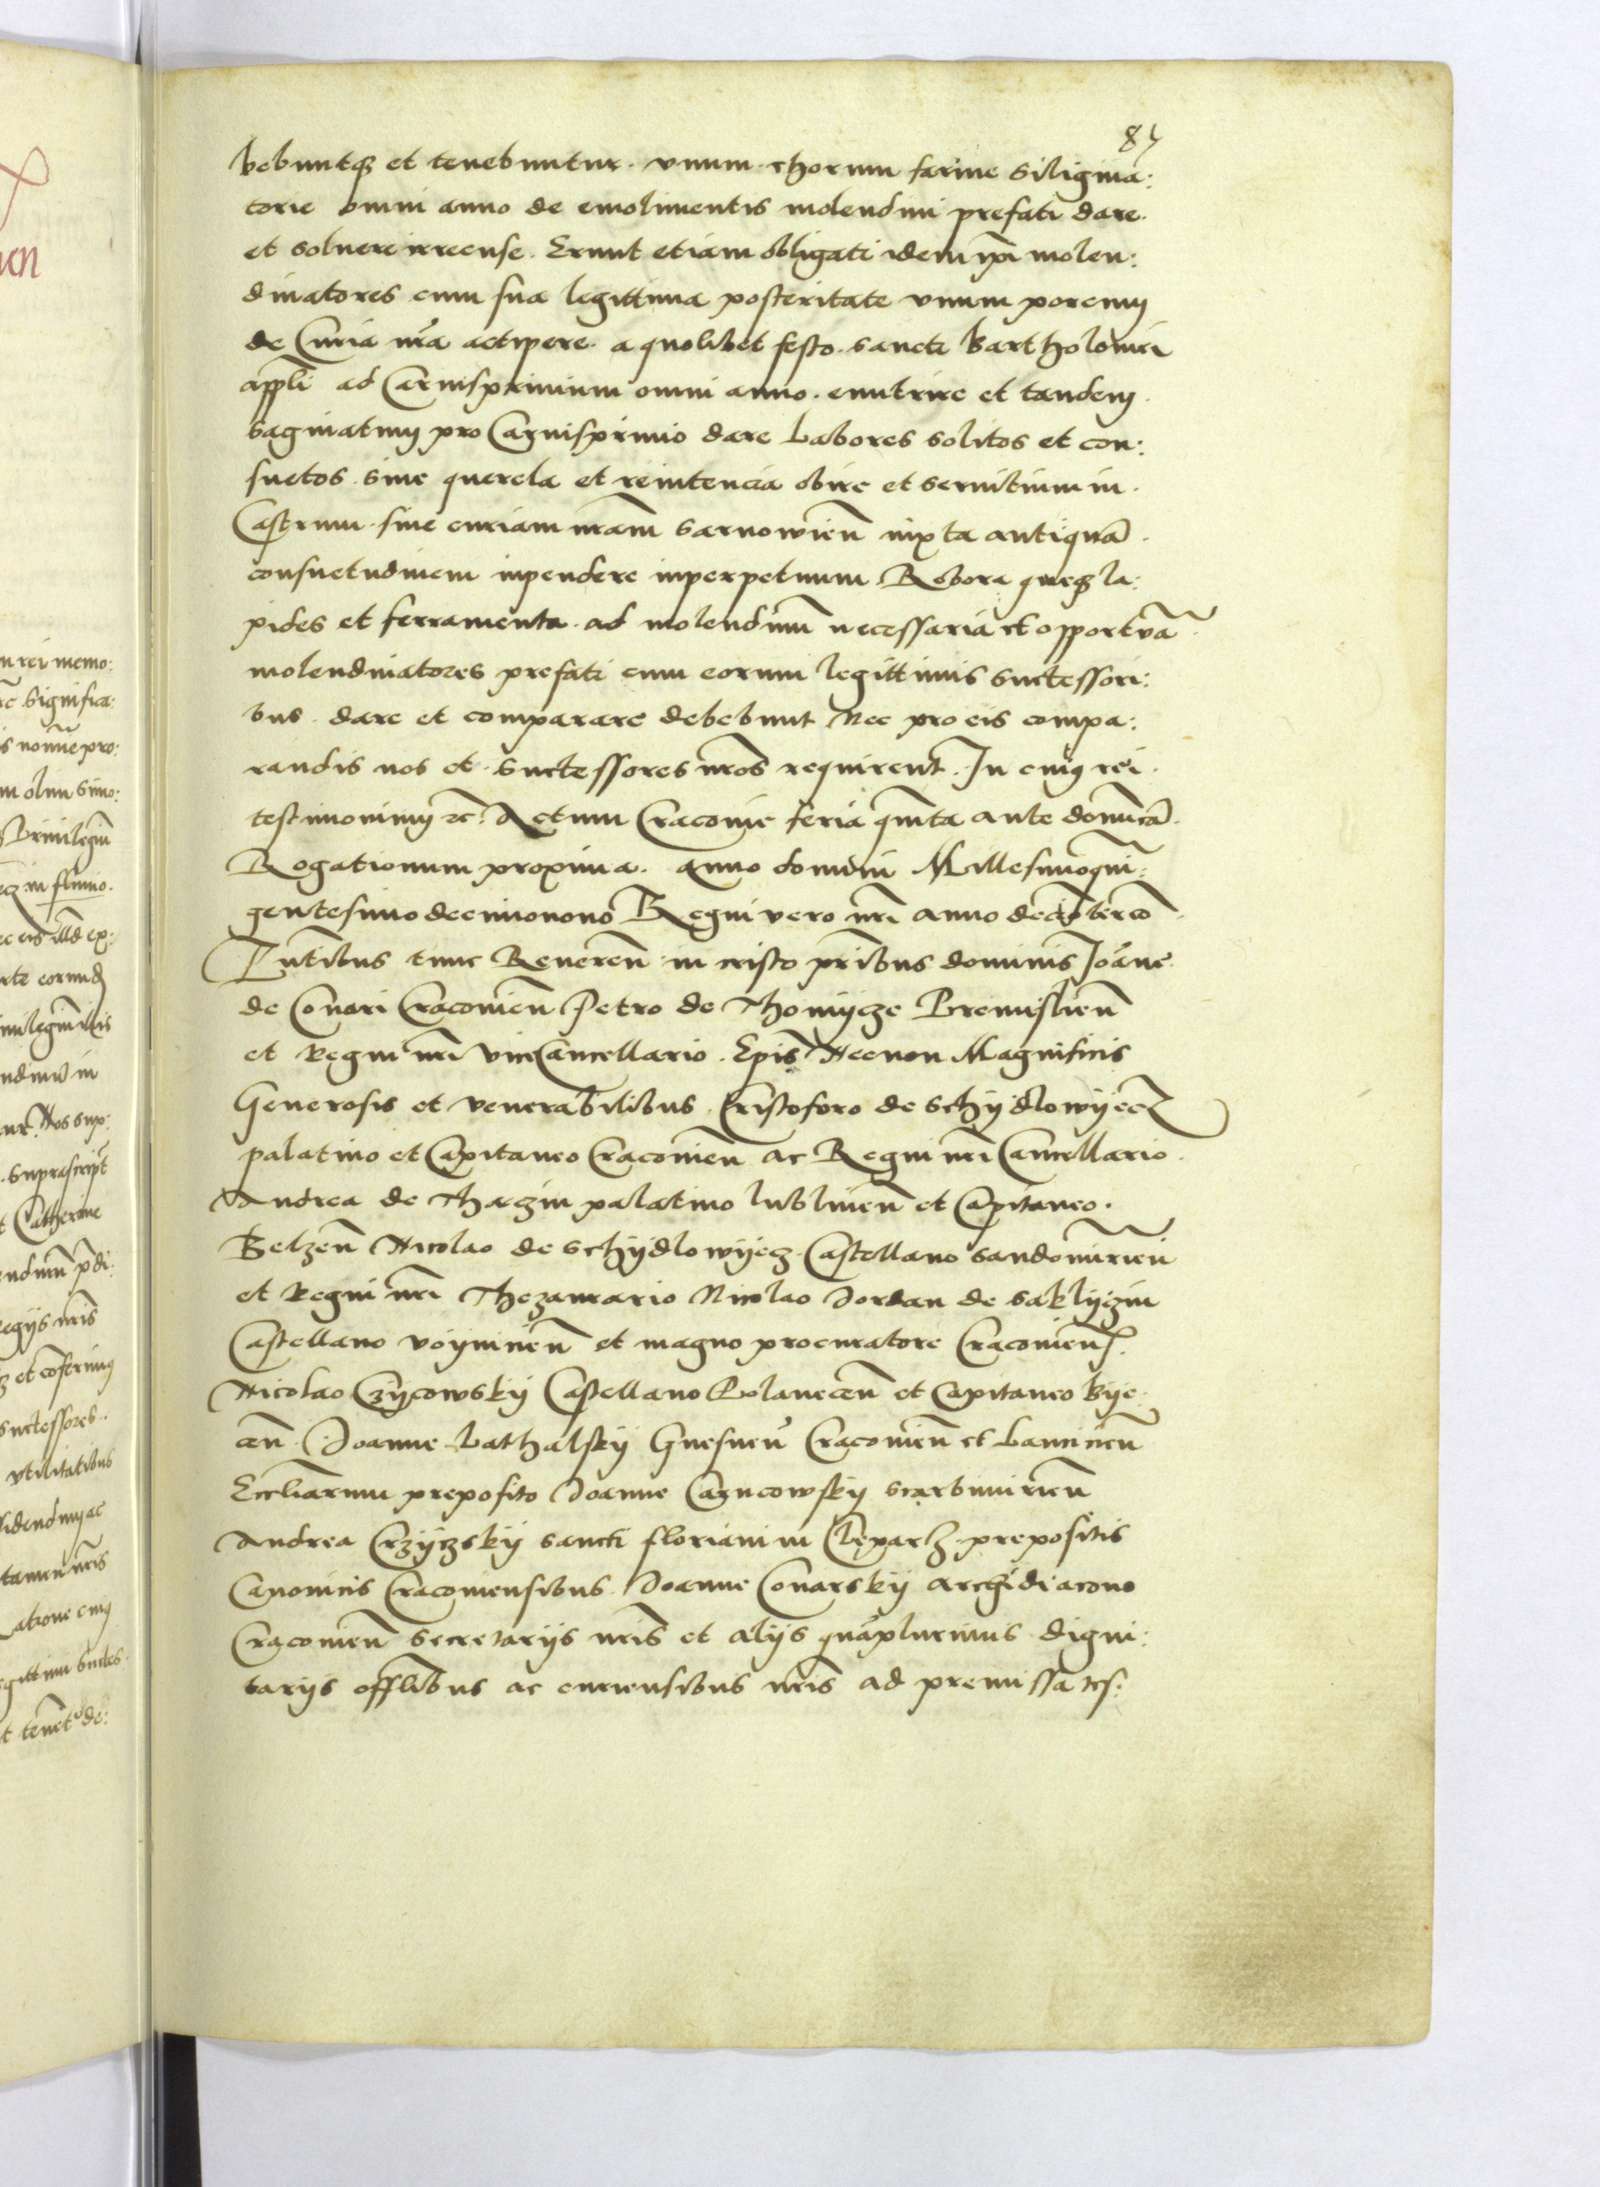 85
bebuntq₃ et tenebuntur. vnum chorum farine siligina:
torie omni anno de emolimentis molendini prefati dare.
et soluere irrecuse. Erunt etiam obligati idem ipi molen:
dinatores cum sua legittima posteritate vnum porcum
de Curia nr̃a accipere a quolibet festo sancti Bartholomei
appli ad Carnisprimium omni anno. enutrire et tandem
saginatum pro Carnisprimio dare Labores solitos et con:
suetos sine querela et reintencia obire et seruitium in
Castrum siue curiam nr̃am Sarnowien̄ iuxta antiquā
consuetudinem inpendere inperpetuum Robora queq₃ la:
pides et ferramenta ad molendinū necessaria et opportuā
molendinatores prefati cum eorum legittimis successori:
bus dare et comparare debebunt Nec pro eis compa:
randis nos et successores nr̃os requirent. In cuiq rei
testimonium &c. Actum Cracouie feria quīta ante dominicā
Rogationum proxima. anno domini Millesimoquin:
gentesimo decimonono Regni vero nr̃i anno decimotercio
Pn̄tibus tunc Reueren̄ in cristo pr̃ibus dominis Joāne
de Conari Cracouien̄ Petro de Thomijcze Premislien̄
et Regni nr̃i ViceCancellario. Epis Necnon Magnificis
Generosis et venerabilibus Cristoforo de Schijdlowijecz
palatino et Capitaneo Cracouien̄ ac Regni nr̃i Cancellario
Andrea de Thaczin palatino lublinen̄ et Capitaneo.
Belzen̄ Nicolao de Schijdlowijecz Castellano Sandomirien̄
et Regni nr̃i Thezaurario Nicolao Jordan de Saklijczin
Castellano voijnicen̄ et magno procuratore Cracouien̄.
Nicolao Czijcowskij Castellano Polanecen̄ et Capitaneo Kije
cen̄ Joanne Lathalskij Gnesnen̄ Cracouien̄ et Lancicien̄
Eccliarum preposito Joanne Carncowskij Scarbimirien̄
Andrea Crzijczskij sancti floriani in Clepartz prepositis
Canonicis Cracouiensibus Joanne Conarskij archidiacono
Cracouien̄ secretarijs nr̃is et alijs quāplurimis digni:
tarijs offlibus ac curiensibus nr̃is ad premissa tes: